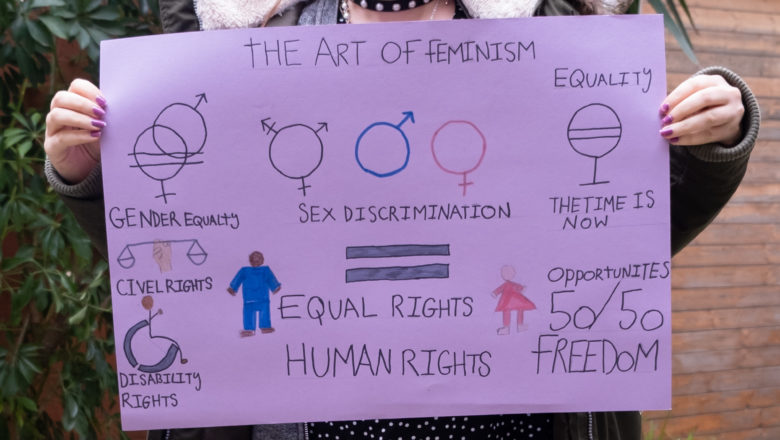 THE ART OF FEMINISM
EQUALITY
GENDER EQUALTY
SEX DISCRIMINATION
THE TIME IS
NOW
CIVEL RIGHTS
EQUAL RIGHTS
OPPORTUNITES
50/50
FREEDOM
HUMAN RIGHTS
DISABILITY
RIGHTS